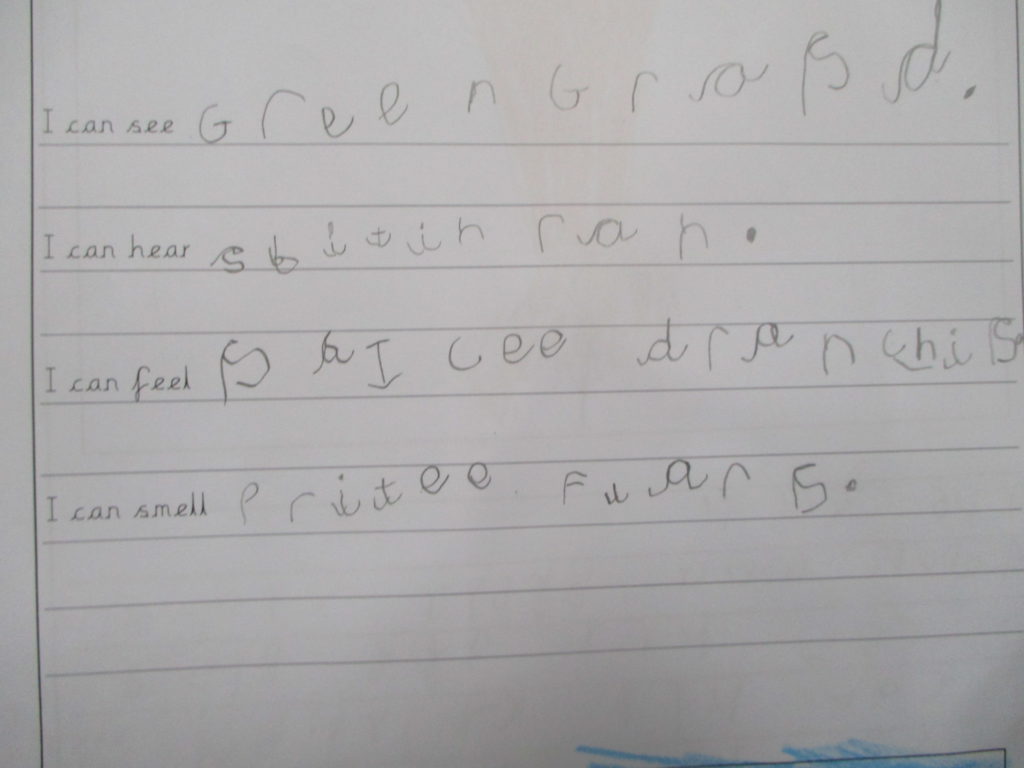 I can see Green Grass d.
I can hear sbitin ran.
I can feel s aI cee dranchis.
I can smell Pritee Fuars.